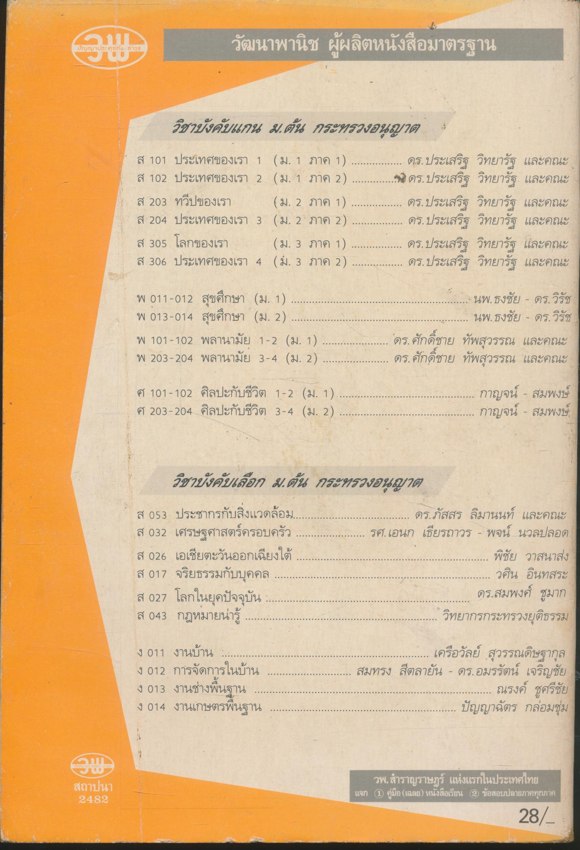 วพ
ปัญญาประดุจดังอาวุธ
วัฒนาพานิช ผู้ผลิตหนังสือมาตรฐาน
วิชาบังคับแกน ม.ต้น กระทรวงอนุญาต
ส 101 ประเทศของเรา 1 (ม. 1 ภาค 1) ................ ดร.ประเสริฐ วิทยารัฐ และคณะ
ส 102 ประเทศของเรา 2 (ม. 1 ภาค 2) ................ ดร.ประเสริฐ วิทยารัฐ และคณะ
ส 203 ทวีปของเรา (ม. 2 ภาค 1) ................ ดร.ประเสริฐ วิทยารัฐ และคณะ
ส 204 ประเทศของเรา 3 (ม. 2 ภาค 2) ................ ดร.ประเสริฐ วิทยารัฐ และคณะ
ส 305 โลกของเรา (ม. 3 ภาค 1) ................ ดร.ประเสริฐ วิทยารัฐ และคณะ
ส 306 ประเทศของเรา 4 (ม. 3 ภาค 2) ................ ดร.ประเสริฐ วิทยารัฐ และคณะ
พ 011-012 สุขศึกษา (ม. 1) ................ นพ.ธงชัย - ดร.วิรัช
พ 013-014 สุขศึกษา (ม. 2) ................ นพ.ธงชัย - ดร.วิรัช
พ 101-102 พลานามัย 1-2 (ม. 1) ................ ดร.ศักดิ์ชาย ทัพสุวรรณ และคณะ
พ 203-204 พลานามัย 3-4 (ม. 2) ................ ดร.ศักดิ์ชาย ทัพสุวรรณ และคณะ
ศ 101-102 ศิลปะกับชีวิต 1-2 (ม. 1) ................ กาญจน์ - สมพงษ์
ศ 203-204 ศิลปะกับชีวิต 3-4 (ม. 2) ................ กาญจน์ - สมพงษ์
วิชาบังคับเลือก ม.ต้น กระทรวงอนุญาต
ส 053 ประชากรกับสิ่งแวดล้อม ................ ดร.ภัสสร ลิมานนท์ และคณะ
ส 032 เศรษฐศาสตร์ครอบครัว ................ รศ.เอนก เธียรถาวร - พจน์ นวลปลอด
ส 026 เอเชียตะวันออกเฉียงใต้ ................ พิชัย วาสนาส่ง
ส 017 จริยธรรมกับบุคคล ................ วศิน อินทสระ
ส 027 โลกในยุคปัจจุบัน ................ ดร.สมพงศ์ ชูมาก
ส 043 กฎหมายน่ารู้ ................ วิทยากรกระทรวงยุติธรรม
ง 011 งานบ้าน ................ เครือวัลย์ สุวรรณดิษฐากุล
ง 012 การจัดการในบ้าน ................ สมทรง สีตลายัน - ดร.อมรรัตน์ เจริญชัย
ง 013 งานช่างพื้นฐาน ................ ณรงค์ ชูศรีชัย
ง 014 งานเกษตรพื้นฐาน ................ ปัญญาฉัตร กล่อมชุ่ม
วพ
สถาปนา
2482
วพ.สำราญราษฎร์ แห่งแรกในประเทศไทย
แจก ① คู่มือ (เฉลย) หนังสือเรียน ② ข้อสอบปลายภาคทุกภาค
28/_